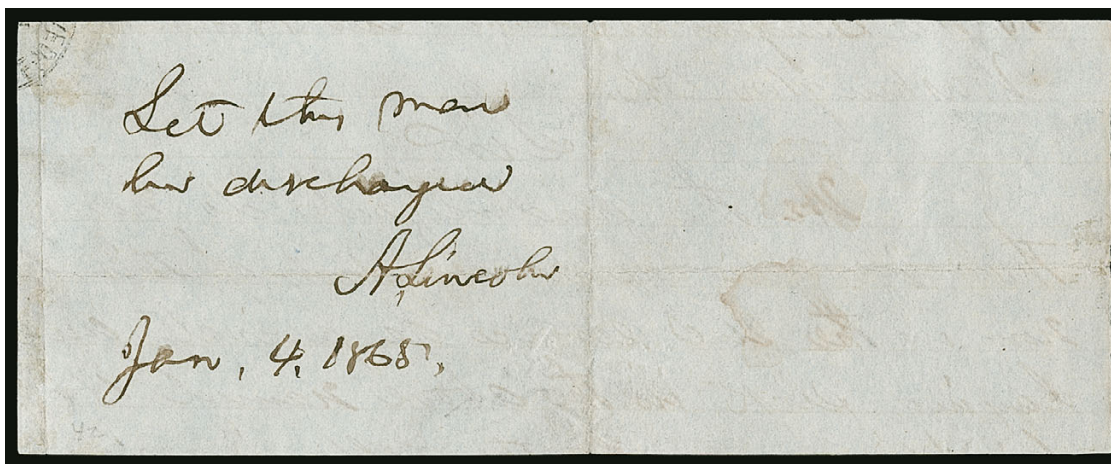 Let this man
be discharged
A. Lincoln
Jan. 4, 1865.